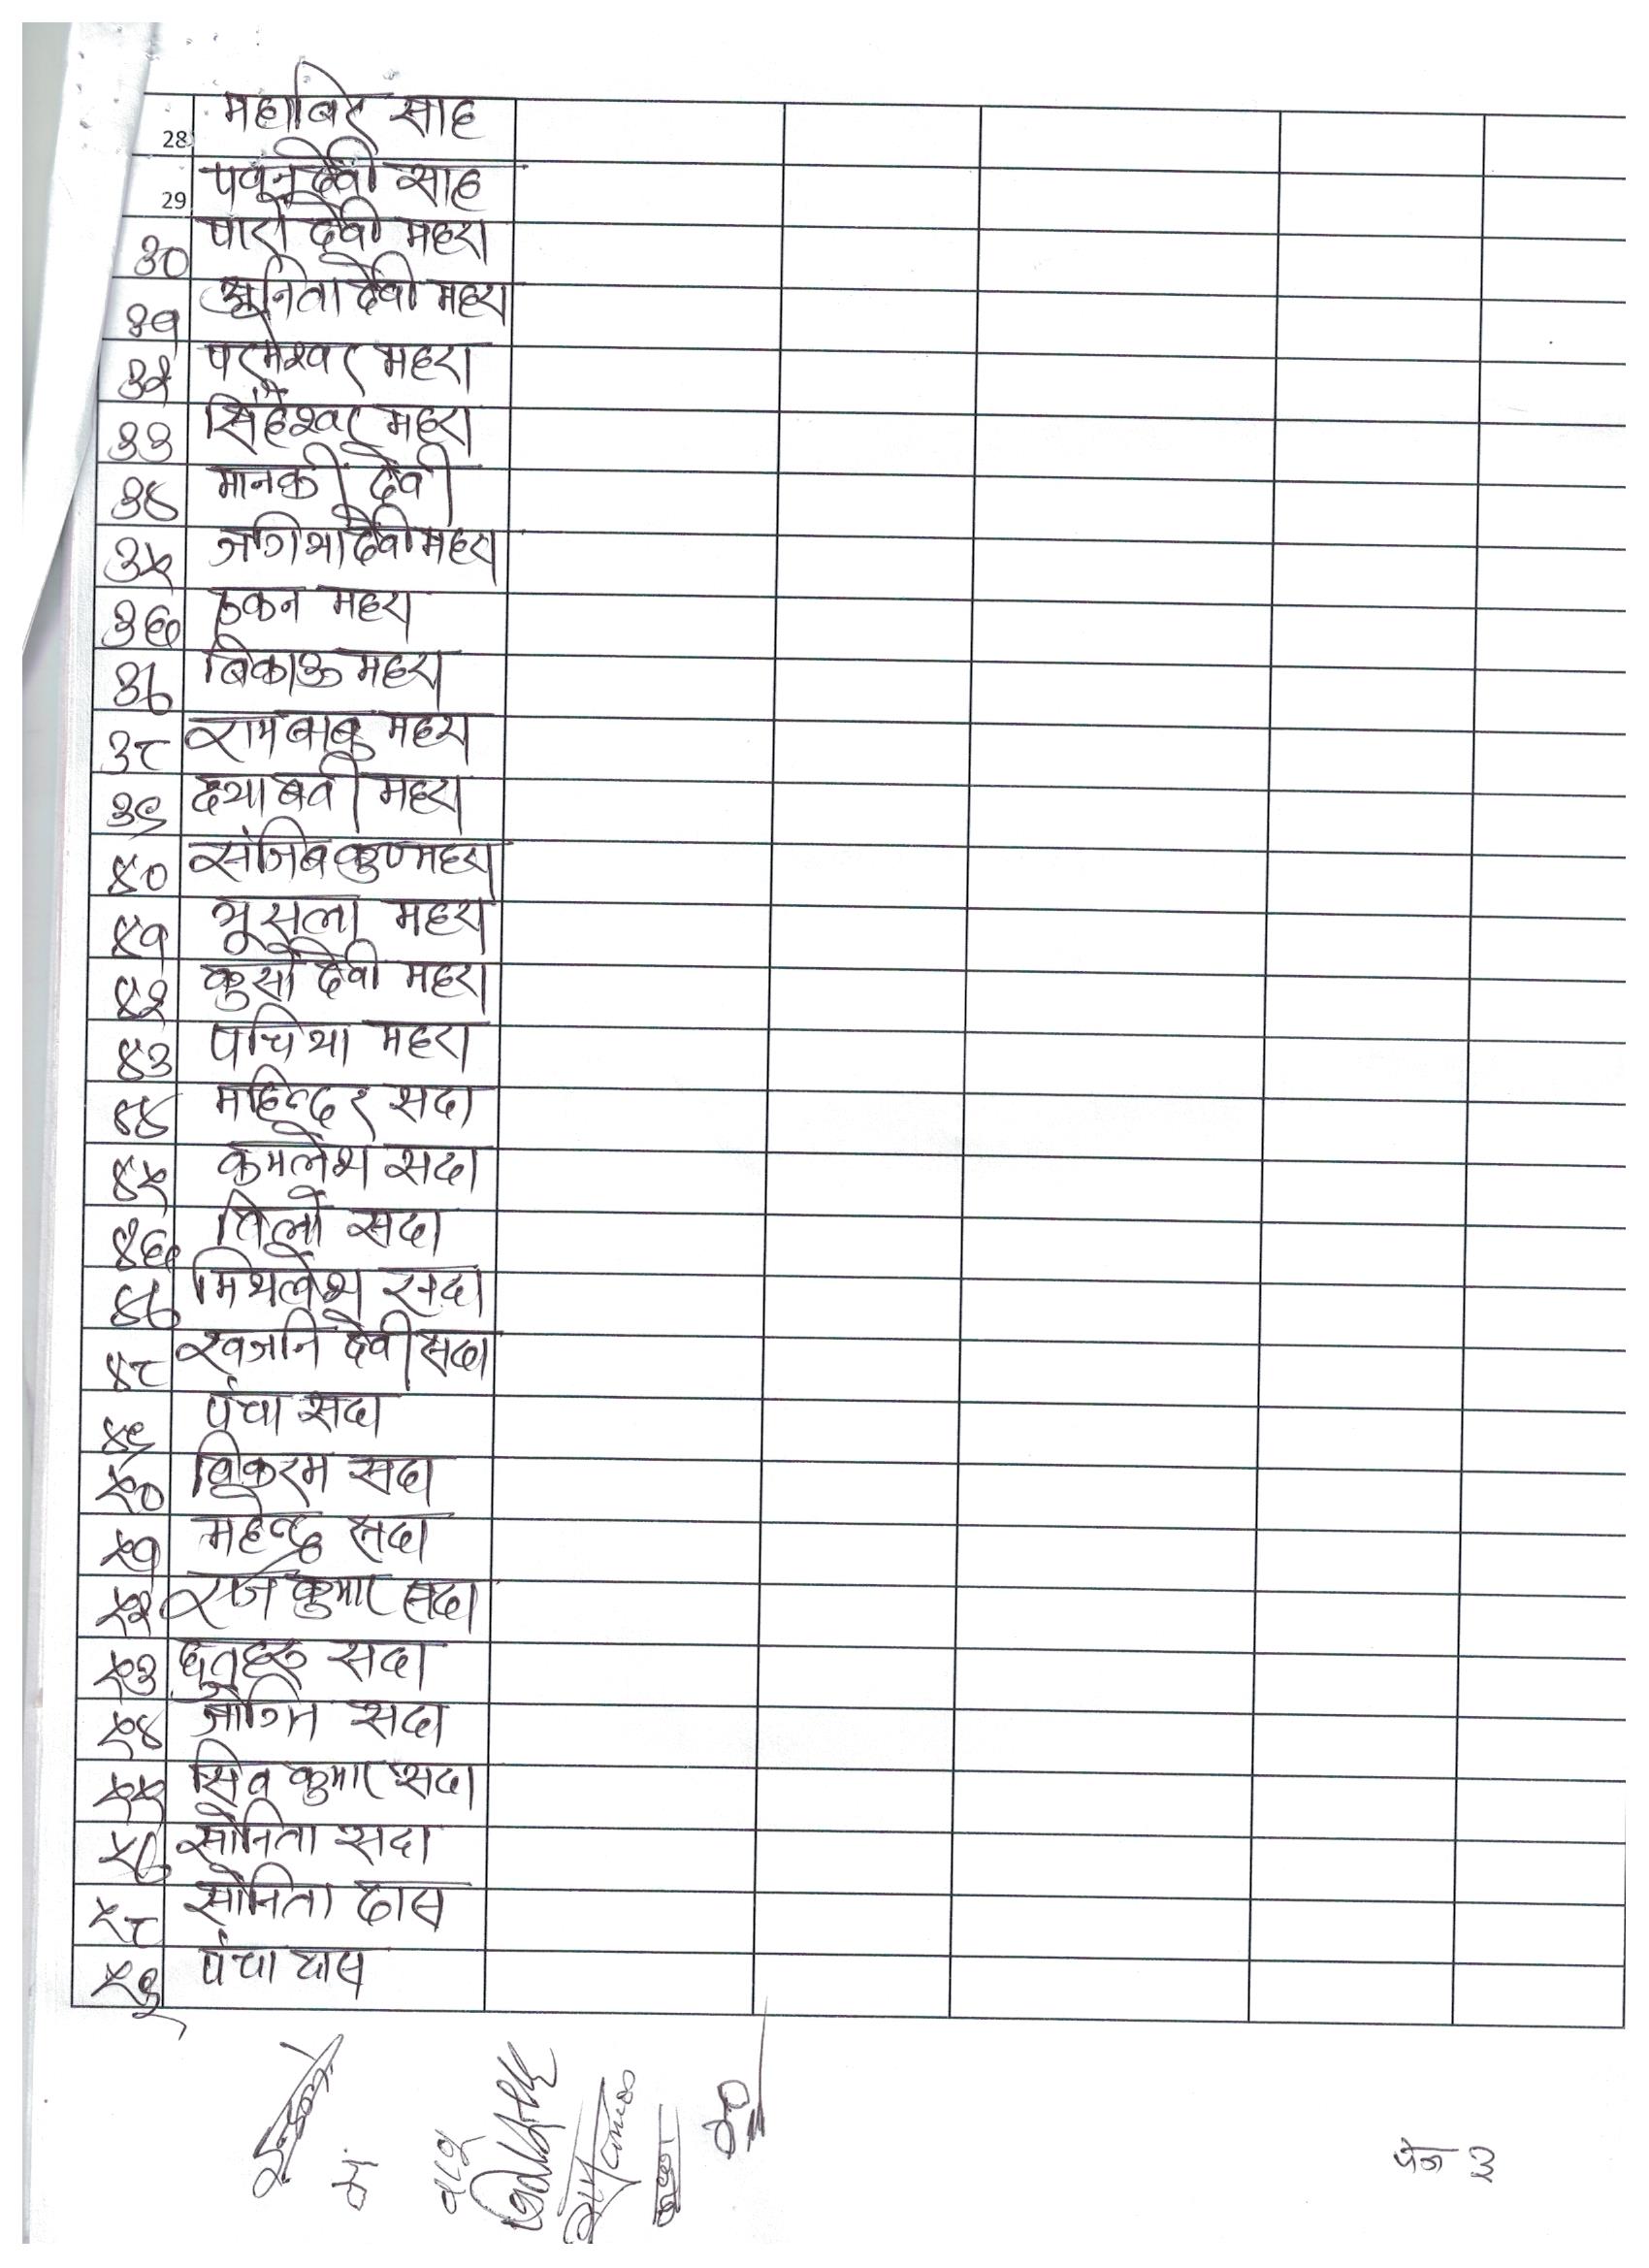 28 महाबिर साह
29 पवनदेवी साह
३० पारो देवी महरा
३१ सुनिता देवी महरा
३२ परमेश्वर महरा
३३ सिंहेश्वर महरा
३४ मानकी देवी
३५ जगिया देवी महरा
३६ हकन महरा
३७ बिकाऊ महरा
३८ रामबाबु महरा
३९ दयाबती महरा
४० संजिब कु० महरा
४१ भुसला महरा
४२ कुसो देवी महरा
४३ पचिया महरा
४४ महिन्दर सदा
४५ कमलेश सदा
४६ तिलो सदा
४७ मिथलेश सदा
४८ स्वजनि देवी सदा
४९ पंचा सदा
५० विकरम सदा
५१ महेन्द्र सदा
५२ राज कुमार सदा
५३ छुतहरु सदा
५४ जोगिन सदा
५५ सिव कुमार सदा
५७ सोनिता सदा
५८ सोनिता दास
५९ पंचा दास
पेज ३